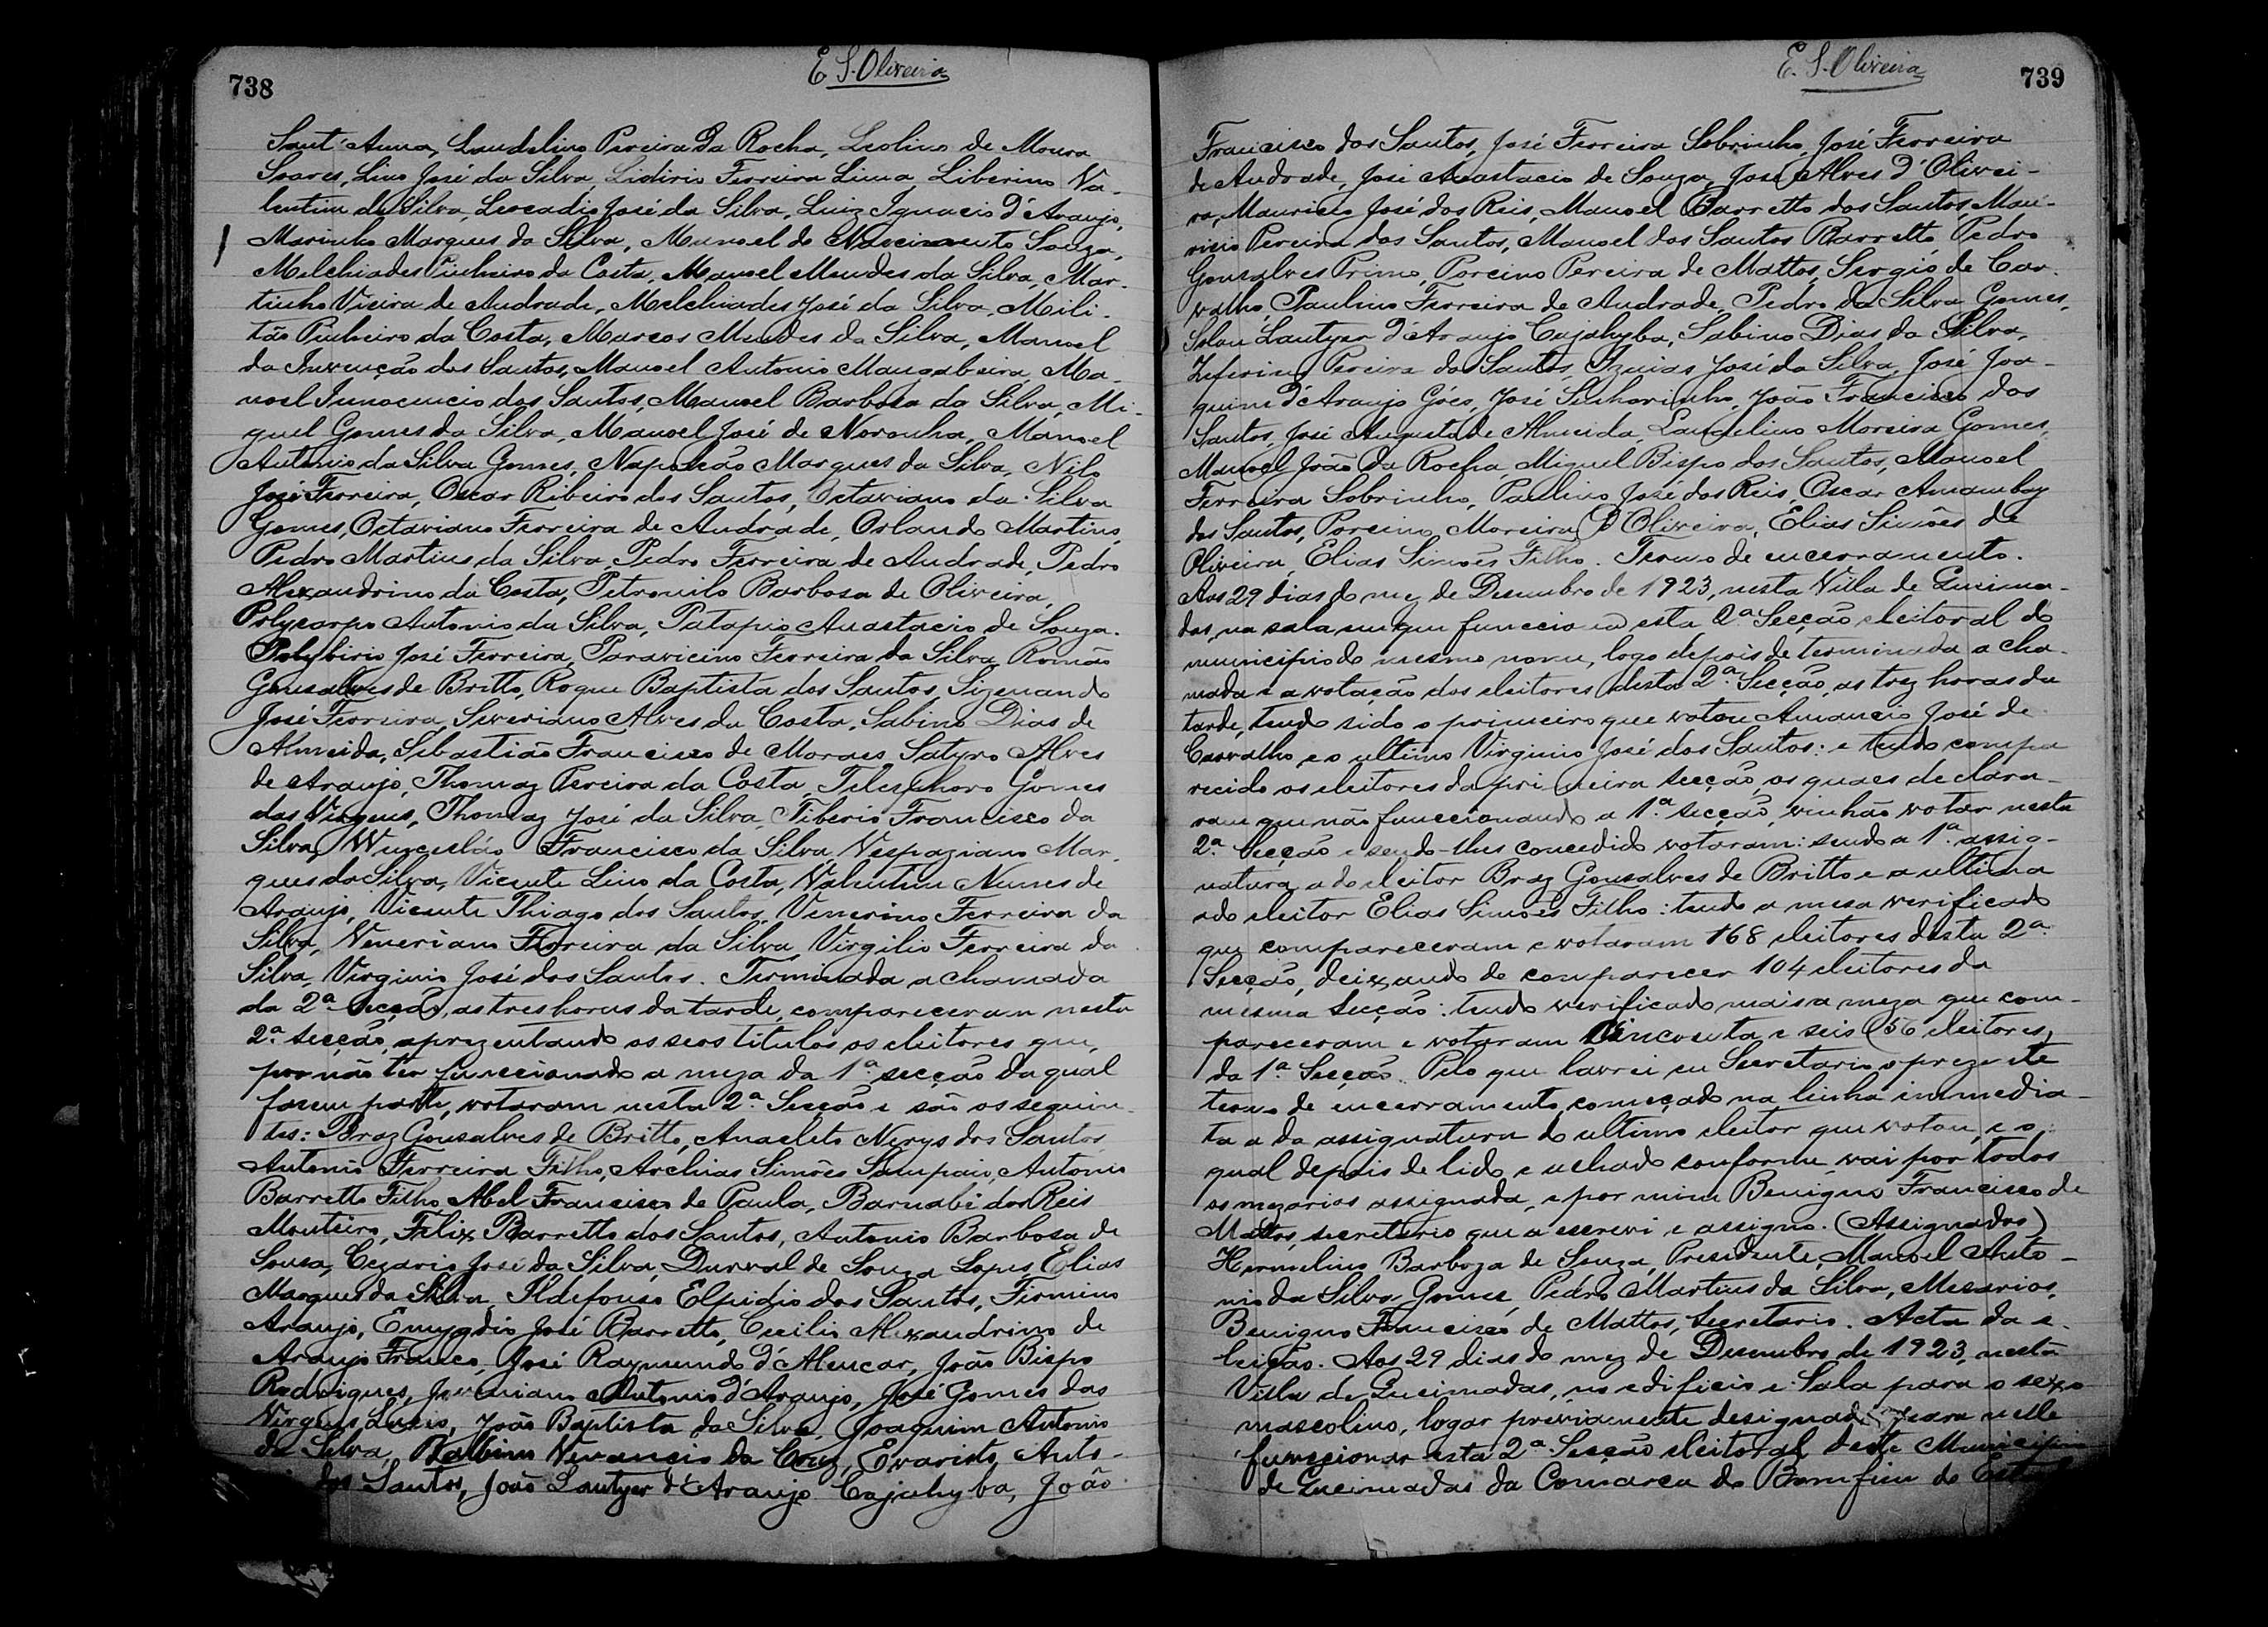 738
E S. Oliveira
Sant'Anna, Laudelino Pereira da Rocha, Leolino de Moura
Soares, Lino José da Silva, Lidirio Ferreira Lima, Liberino Va-
lentim da Silva, Leocadio José da Silva, Luiz Ignacio d'Araujo,
Marinho Marques da Silva, Manoel do Nascimento Souza,
Melchiades Pinheiro da Costa, Manoel Mendes da Silva, Mar-
tinho Vieira de Andrade, Melchiades José da Silva, Mili-
tão Pinheiro da Costa, Marcos Mendes da Silva, Manoel
da Invenção dos Santos, Manoel Antonio Mangabeira, Ma-
noel Innocencio dos Santos, Manoel Barbosa da Silva, Mi-
guel Gomes da Silva, Manoel José de Noronha, Manoel
Antonio da Silva Gomes, Napoleão Marques da Silva, Nilo
José Ferreira, Oscar Ribeiro dos Santos, Octaviano da Silva
Gomes, Octaviano Ferreira de Andrade, Orlando Martins,
Pedro Martins da Silva, Pedro Ferreira de Andrade, Pedro
Alexandrino da Costa, Petronilo Barbosa de Oliveira,
Polycarpo Antonio da Silva, Patapio Anastacio de Souza.
Polybirio José Ferreira, Paravicino Ferreira da Silva, Romão
Gonsalves de Britto, Roque Baptista dos Santos, Sizenando
José Ferreira, Severiano Alves da Costa, Sabino Dias de
Almeida, Sebastião Francisco de Moraes, Satyro Alves
de Araujo, Thomaz Pereira da Costa, Telesphoro Gomes
das Virgens, Thomaz José da Silva, Tiberio Francisco da
Silva, Wencesláo Francisco da Silva, Vespaziano Mar-
ques da Silva, Vicente Lino da Costa, Valentim Nunes de
Araujo, Vicente Thiago dos Santos, Venerino Ferreira da
Silva, Veneriano Ferreira da Silva, Virgilio Ferreira da
Silva, Virginio José dos Santos. Terminada a chamada
da 2ª Secção, as tres horas da tarde, compareceram nesta
2ª secção, aprezentando os seos titulos os eleitores que,
por não ter funccionado a meza da 1ª secção da qual
fazem parte, votaram nesta 2ª Secção e são os seguin-
tes: Braz Gonsalves de Britto, Anacleto Nerys dos Santos
Antonio Ferreira Filho, Archias Simões Sampaio, Antonio
Barretto Filho, Abel Francisco de Paula, Barnabé dos Reis
Monteiro, Felix Barretto dos Santos, Antonio Barbosa de
Sousa, Cezario José da Silva, Durval de Souza Lopes, Elias
Marques da Silva, Ildefonso Elpidio dos Santos, Firmino
Araujo, Emygdio José Barretto, Cecilio Alexandrino de
Araujo Franco, José Raymundo d'Alencar, João Bispo
Rodrigues, Antonio d'Araujo, José Gomes das
Virgens Lucio, João Baptista da Silva, Joaquim Antonio
da Silva, Balbino Venancio da Cruz, Evaristo Anto-
dos Santos, João Lantyer d'Araujo Cajahyba, João
E. S. Oliveira
739
Francisco dos Santos, José Ferreira Sobrinho, José Ferreira
de Andrade, José Anastacio de Souza, José Alves d'Olivei-
ra, Mauricio José dos Reis, Manoel Barretto dos Santos, Mau-
ricio Pereira dos Santos, Manoel dos Santos Barretto, Pedro
Gonsalves Primo, Porcino Pereira de Mattos, Sergio de Car-
valho, Paulino Ferreira de Andrade, Pedro da Silva Gomes,
Solon Lantyer d'Araujo Cajahyba, Sabino Dias da Silva,
Zeferino Pereira do Santos, José da Silva, José Joa-
quim d'Araujo Góes, José Senhorinho, João Francisco dos
Santos, José Augusto de Almeida, Moreira Gomes,
Manoel João da Rocha, Miguel Bispo dos Santos, Manoel
Ferreira Sobrinho, Paulino José dos Reis, Oscar Amambay
dos Santos, Porcino Moreira d'Oliveira, Elias Simões de
Oliveira, Elias Simões Filho. Termo de encerramento.
Aos 29 dias do mez de Desembro de 1923, nesta Villa de Queima-
das, na sala em que funcciona esta 2ª Secção eleitoral do
municipio do mesmo nome, logo depois de terminada a cha-
mada e a votação dos eleitores desta 2ª Secção, as trez horas da
tarde, tendo sido o primeiro que votou Amancio José de
Carvalho, e o ultimo Virginio José dos Santos: e tendo compa
recido os eleitores da primeira secção, os quaes declara-
ram que não funccionando a 1ª secção, vinhão votar nesta
2ª Secção e sendo-lhes concedido votaram: sendo a 1ª assig-
natura a do eleitor Braz Gonsalves de Britto e a ultima
a do eleitor Elias Simões Filho: tendo a mesa verificado
que compareceram e votaram 168 eleitores desta 2ª
Secção, deixando de comparecer 104 eleitores da
mesma secção: tendo verificado mais a meza que com-
pareceram e votaram Cincoenta e seis (56 eleitores)
da 1ª Secção. Pelo que lavrei eu Secretario o prezente
termo de encerramento, começado na linha immedia-
ta a da assignatura do ultimo eleitor que votou, e o
qual depois de lido e achado conforme, vai por todos
os mezarios assignada, e por mim Benigno Francisco de
Mattos, secretario que a escrevi e assigno. (Assignados)
Hermelino Barboza de Souza, Presidente, Manoel Anto-
nio da Silva Gomes, Pedro Martins da Silva, Mesarios,
Benigno Francisco de Mattos, Secretario. Acta da e-
leição. Aos 29 dias do mez de Desembro de 1923, nesta
Villa de Queimadas, no edificio e Sala para o sexo
mascolino, logar previamente designado para nelle
funccionar esta 2ª Secção eleitoral deste Municipio
de Queimadas da Comarca do Bomfim do